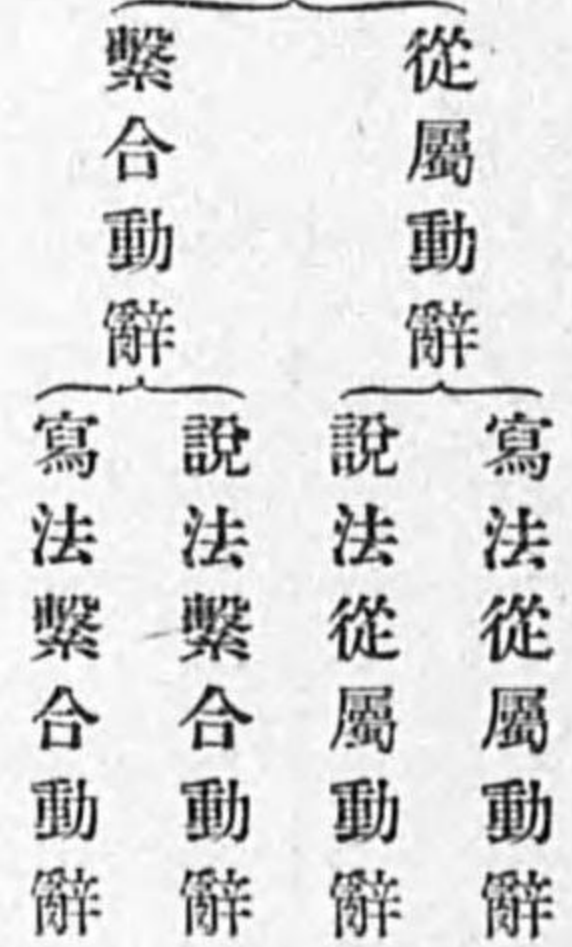 從屬動辭
寫法從屬動辭
說法從屬動辭
繫合動辭
說法繫合動辭
寫法繫合動辭